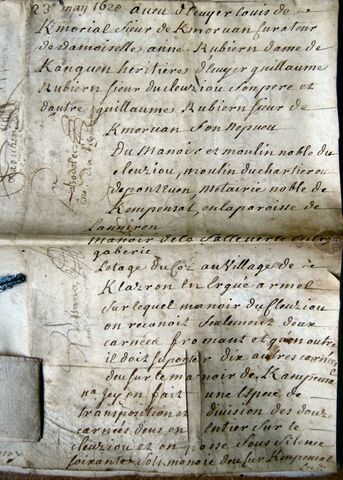 23e may 1628 aveu d'Ecuyer louis de
Kmorial sieur de Kmoruan curateur
de damoiselle anne Rubiern dame de
Kanguen heritiere d'Ecuyer guillaume
Rubiern sieur du cleuziou son pere et
d'autre guillaume Rubiern sieur de
Kmoruan son nepueu
Du Manoir et moulin noble du
cleuziou, moulin du chartier ou
de pontruen metairie noble de
Kempensal, en la paroisse de
Lanniron
Manoir de la Salle verte en Ergue
gaberic
Letage du Coz au Village de
Klazron en Ergue armel
Sur lequel manoir du Cleuziou
on reconoit seulement deux
carnées fromant et qu'en outre
il doit suporter dix autres carnées
deu sur le manoir de Kampensal
na jey on fait une Espece de
transposition et division des douze
carnées deus en entier sur le
cleuziou et on passe sous silence
soixante sols monoie deu sur Kenpensal